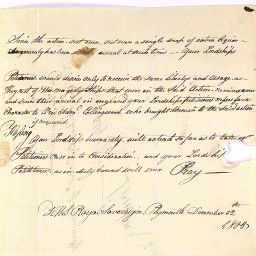 Since the action, not even, not even a single drop of extra liquor
has generally has been served several at such times — Your Lordships
Petitioners earnest desire only to receive the same Liberty and Usage as
the rest of His Majestys Ships that were in the Said Action. Her ring worn
and since their arrival in england your Lordships petitioners refers for a
Character to Rear Adml Collingwood who brought them in to the said action
if required
Hoping
Your Lordships humanity, will extend so far as to take our
Petition Case in to Consideration. and your Lordship
Petitioners, as in duty bound will ever Pray —
HMS Royal Sovereign, Plymouth December 12,
1805